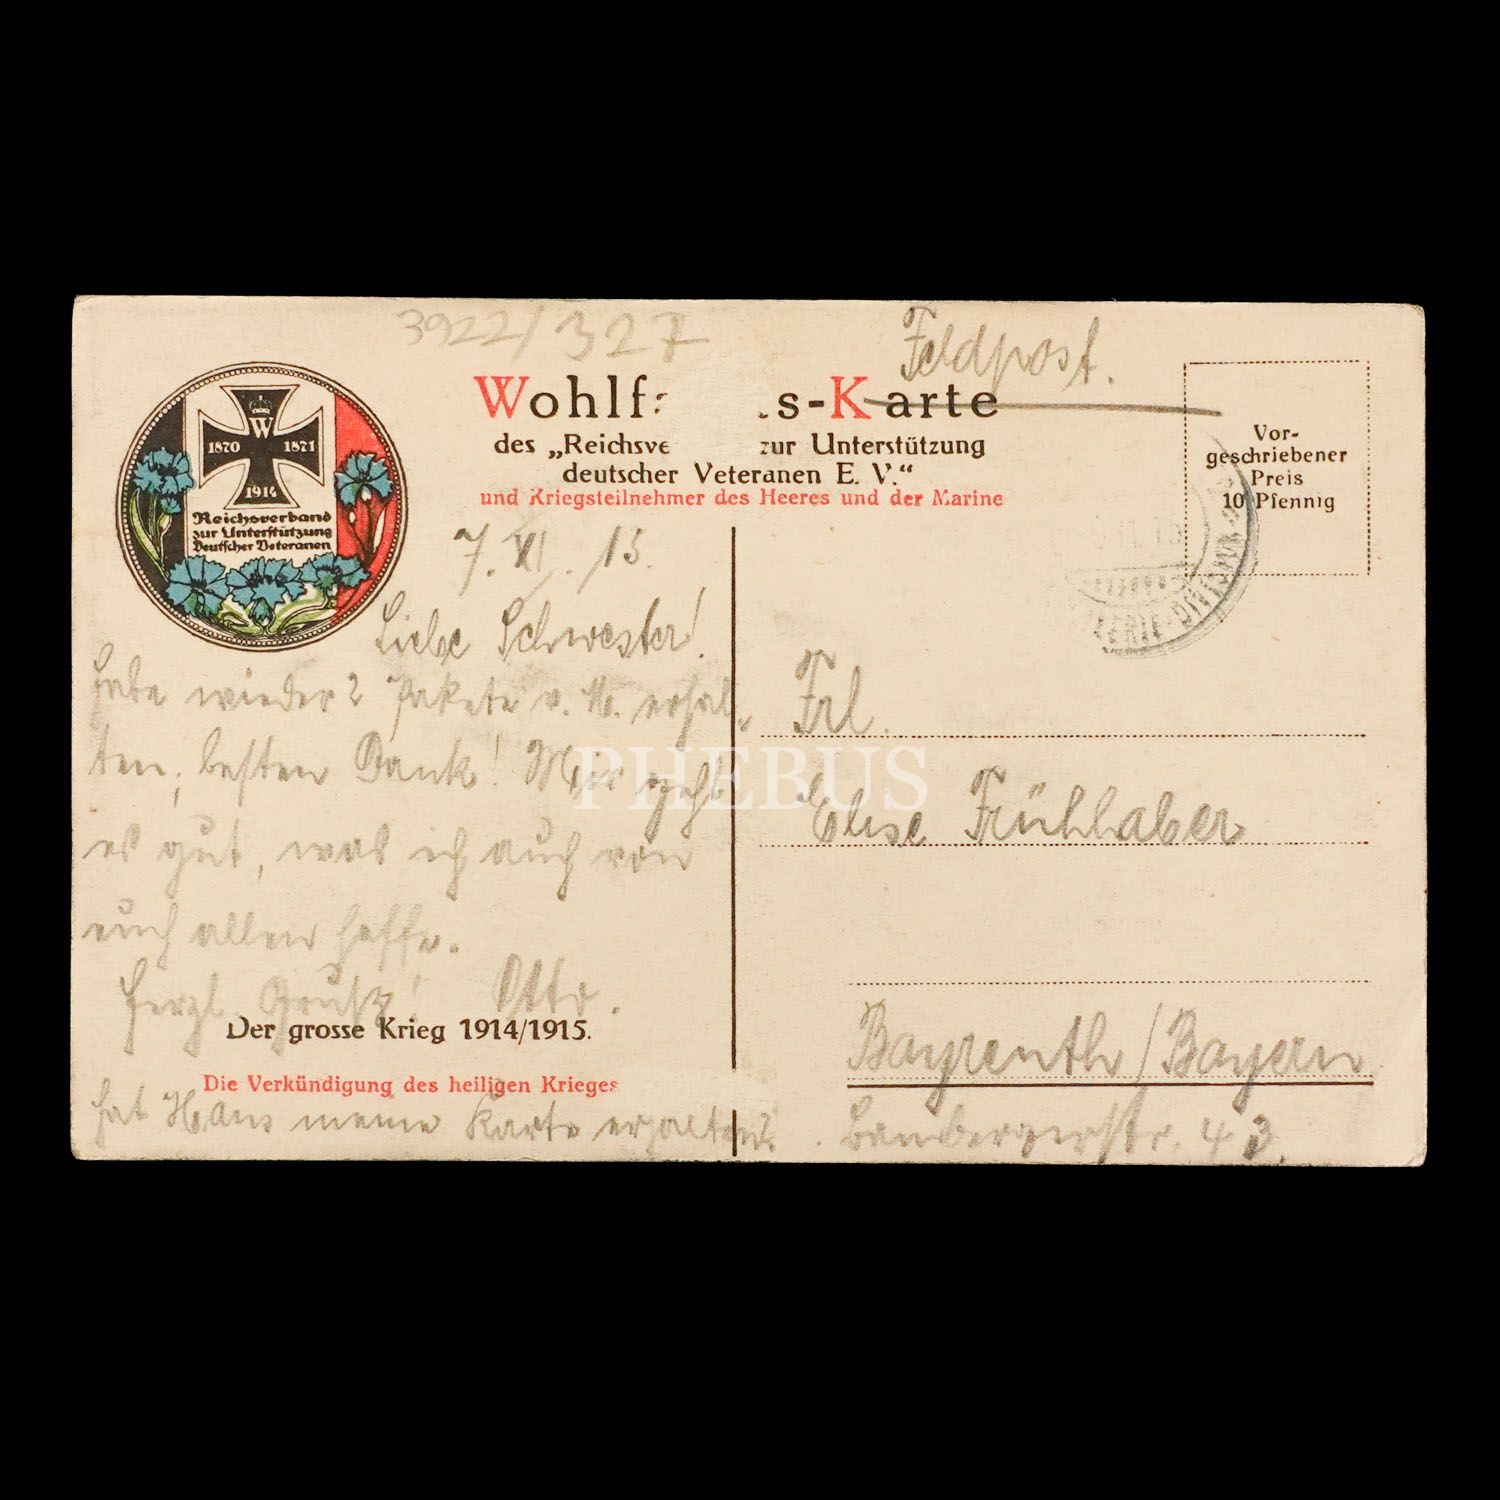 3922/327
Feldpost.
Wohlf s-Karte
des „Reichsve zur Unterstützung
deutscher Veteranen E. V."
und Kriegsteilnehmer des Heeres und der Marine
Vor-
geschriebener
Preis
10 Pfennig
W
1870 1871
1914
Reichsverband
zur Unterstützung
Deutscher Veteranen
7. XI. 15.
Liebe Schwester!
habe wieder 2 Pakete v. M. erhal-
ten, besten Dank! Mir geht
es gut, was ich auch von
euch allen hoffe.
Herzl. Gruß! Otto.
Der grosse Krieg 1914/1915.
Die Verkündigung des heiligen Krieges
hat Hans meine Karte erhalten?
Frl.
Elise Frühhaber
Bayreuth/Bayern
Bambergerstr. 43.
PHEBUS